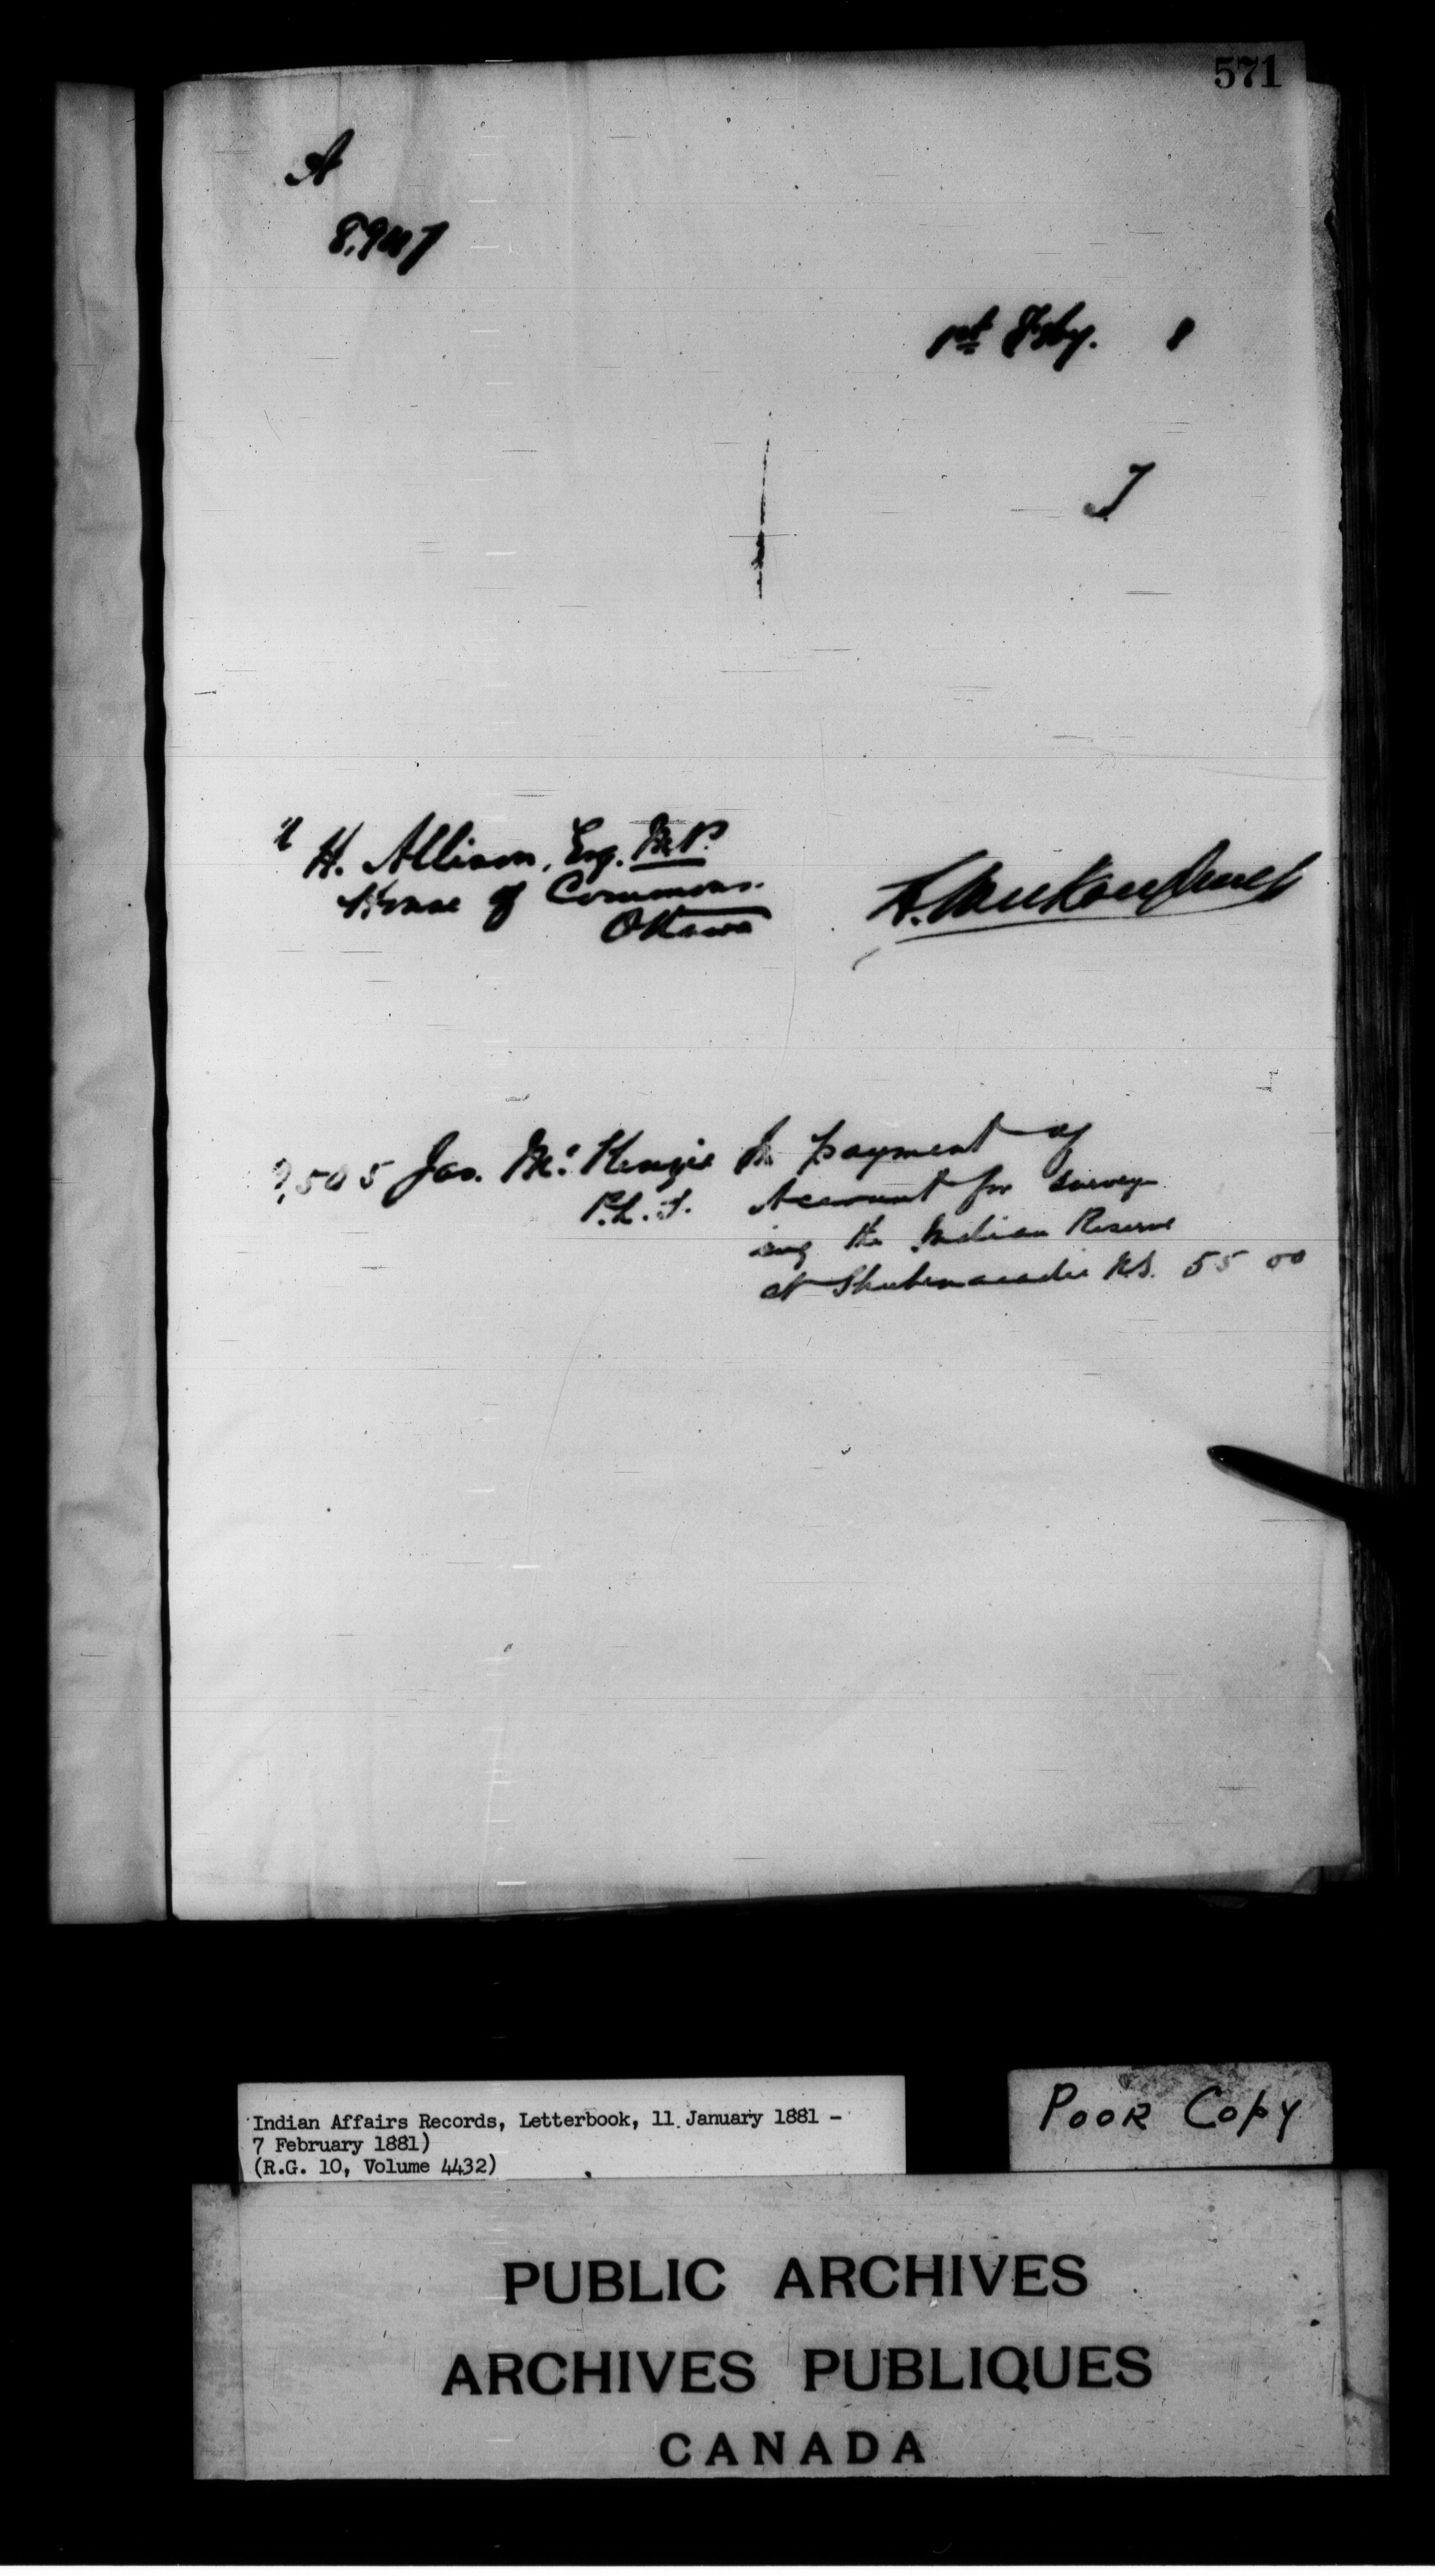 571
A
1st Feby. 8
J
H. Allison, Esq. M.P.
House of Commons.
Ottawa
L. VanKoughnet
505 Jas. McKenzie In payment of
P.L.S. Account for survey
ing the Indian Reserve
at Shubenacadie N.S. 55 00
Indian Affairs Records, Letterbook, 11 January 1881 -
7 February 1881)
(R.G. 10, Volume 4432)
POOR COPY
PUBLIC ARCHIVES
ARCHIVES PUBLIQUES
CANADA